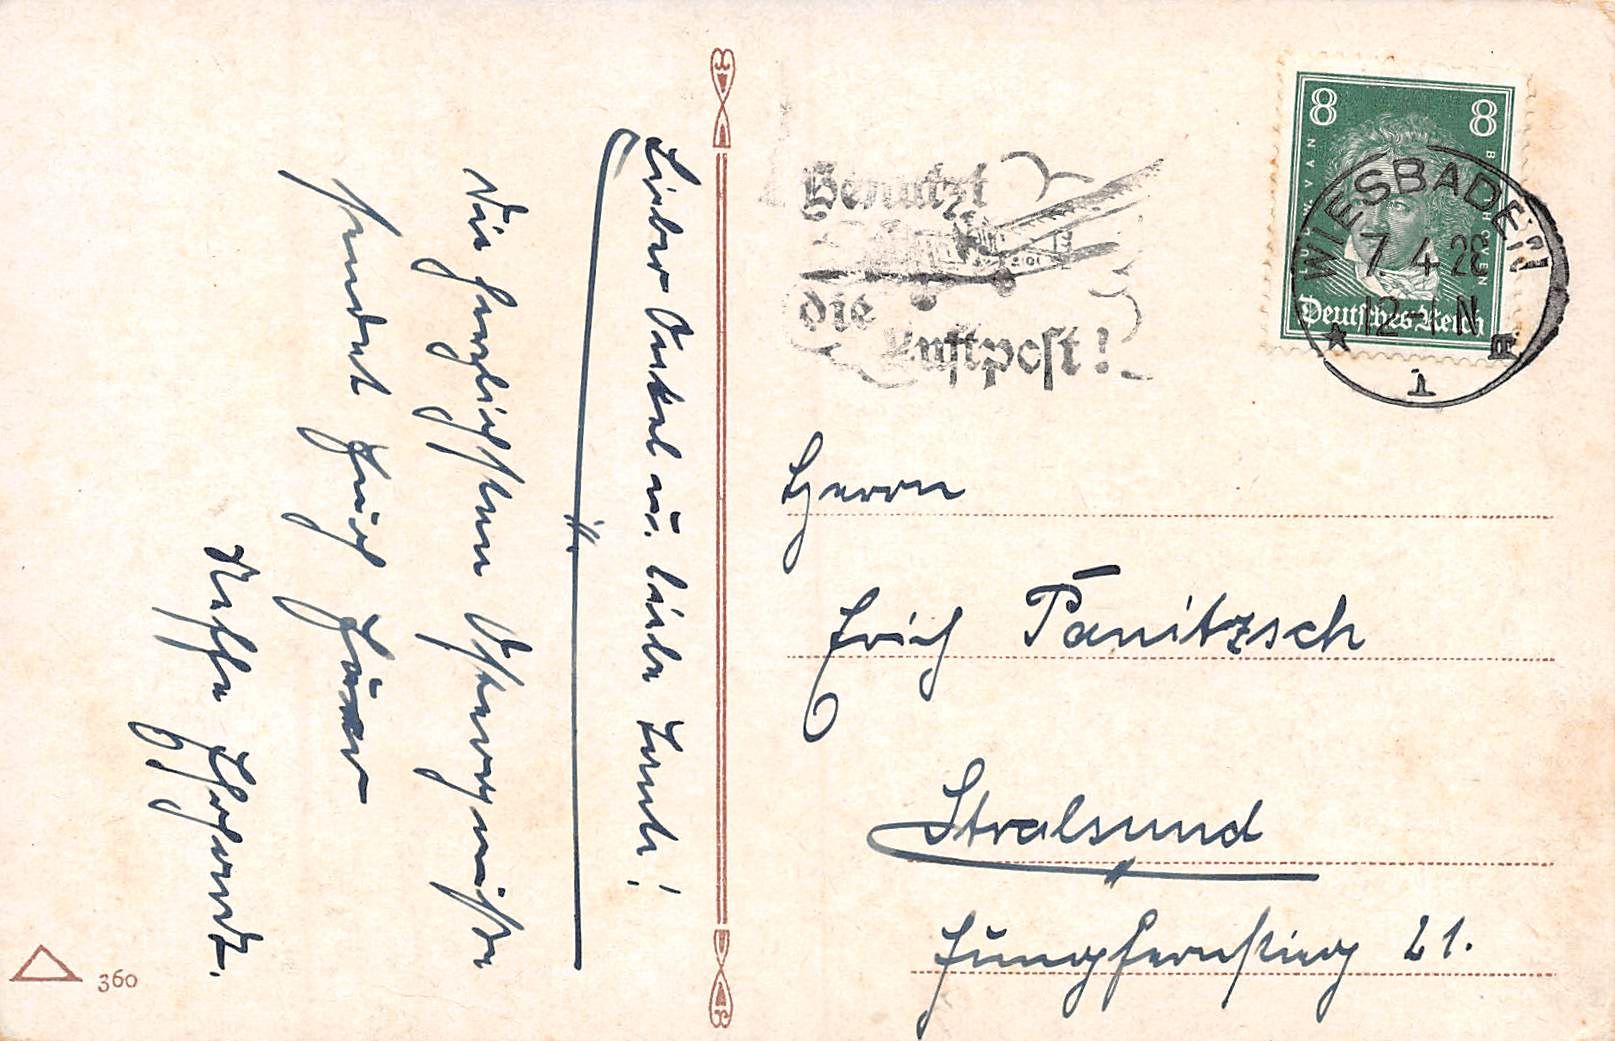 Lieber Onkel u. liebe Tante!
Die herzlichsten Ostergrüße
sendet Euch Euer
Neffe
360
Benutzt
die
Luftpost!
8 8
Deutsches Reich
WIESBADEN
7.4.28
12-1N
1
Herrn
Erich Panitzsch
Stralsund
Jungfernstieg 21.